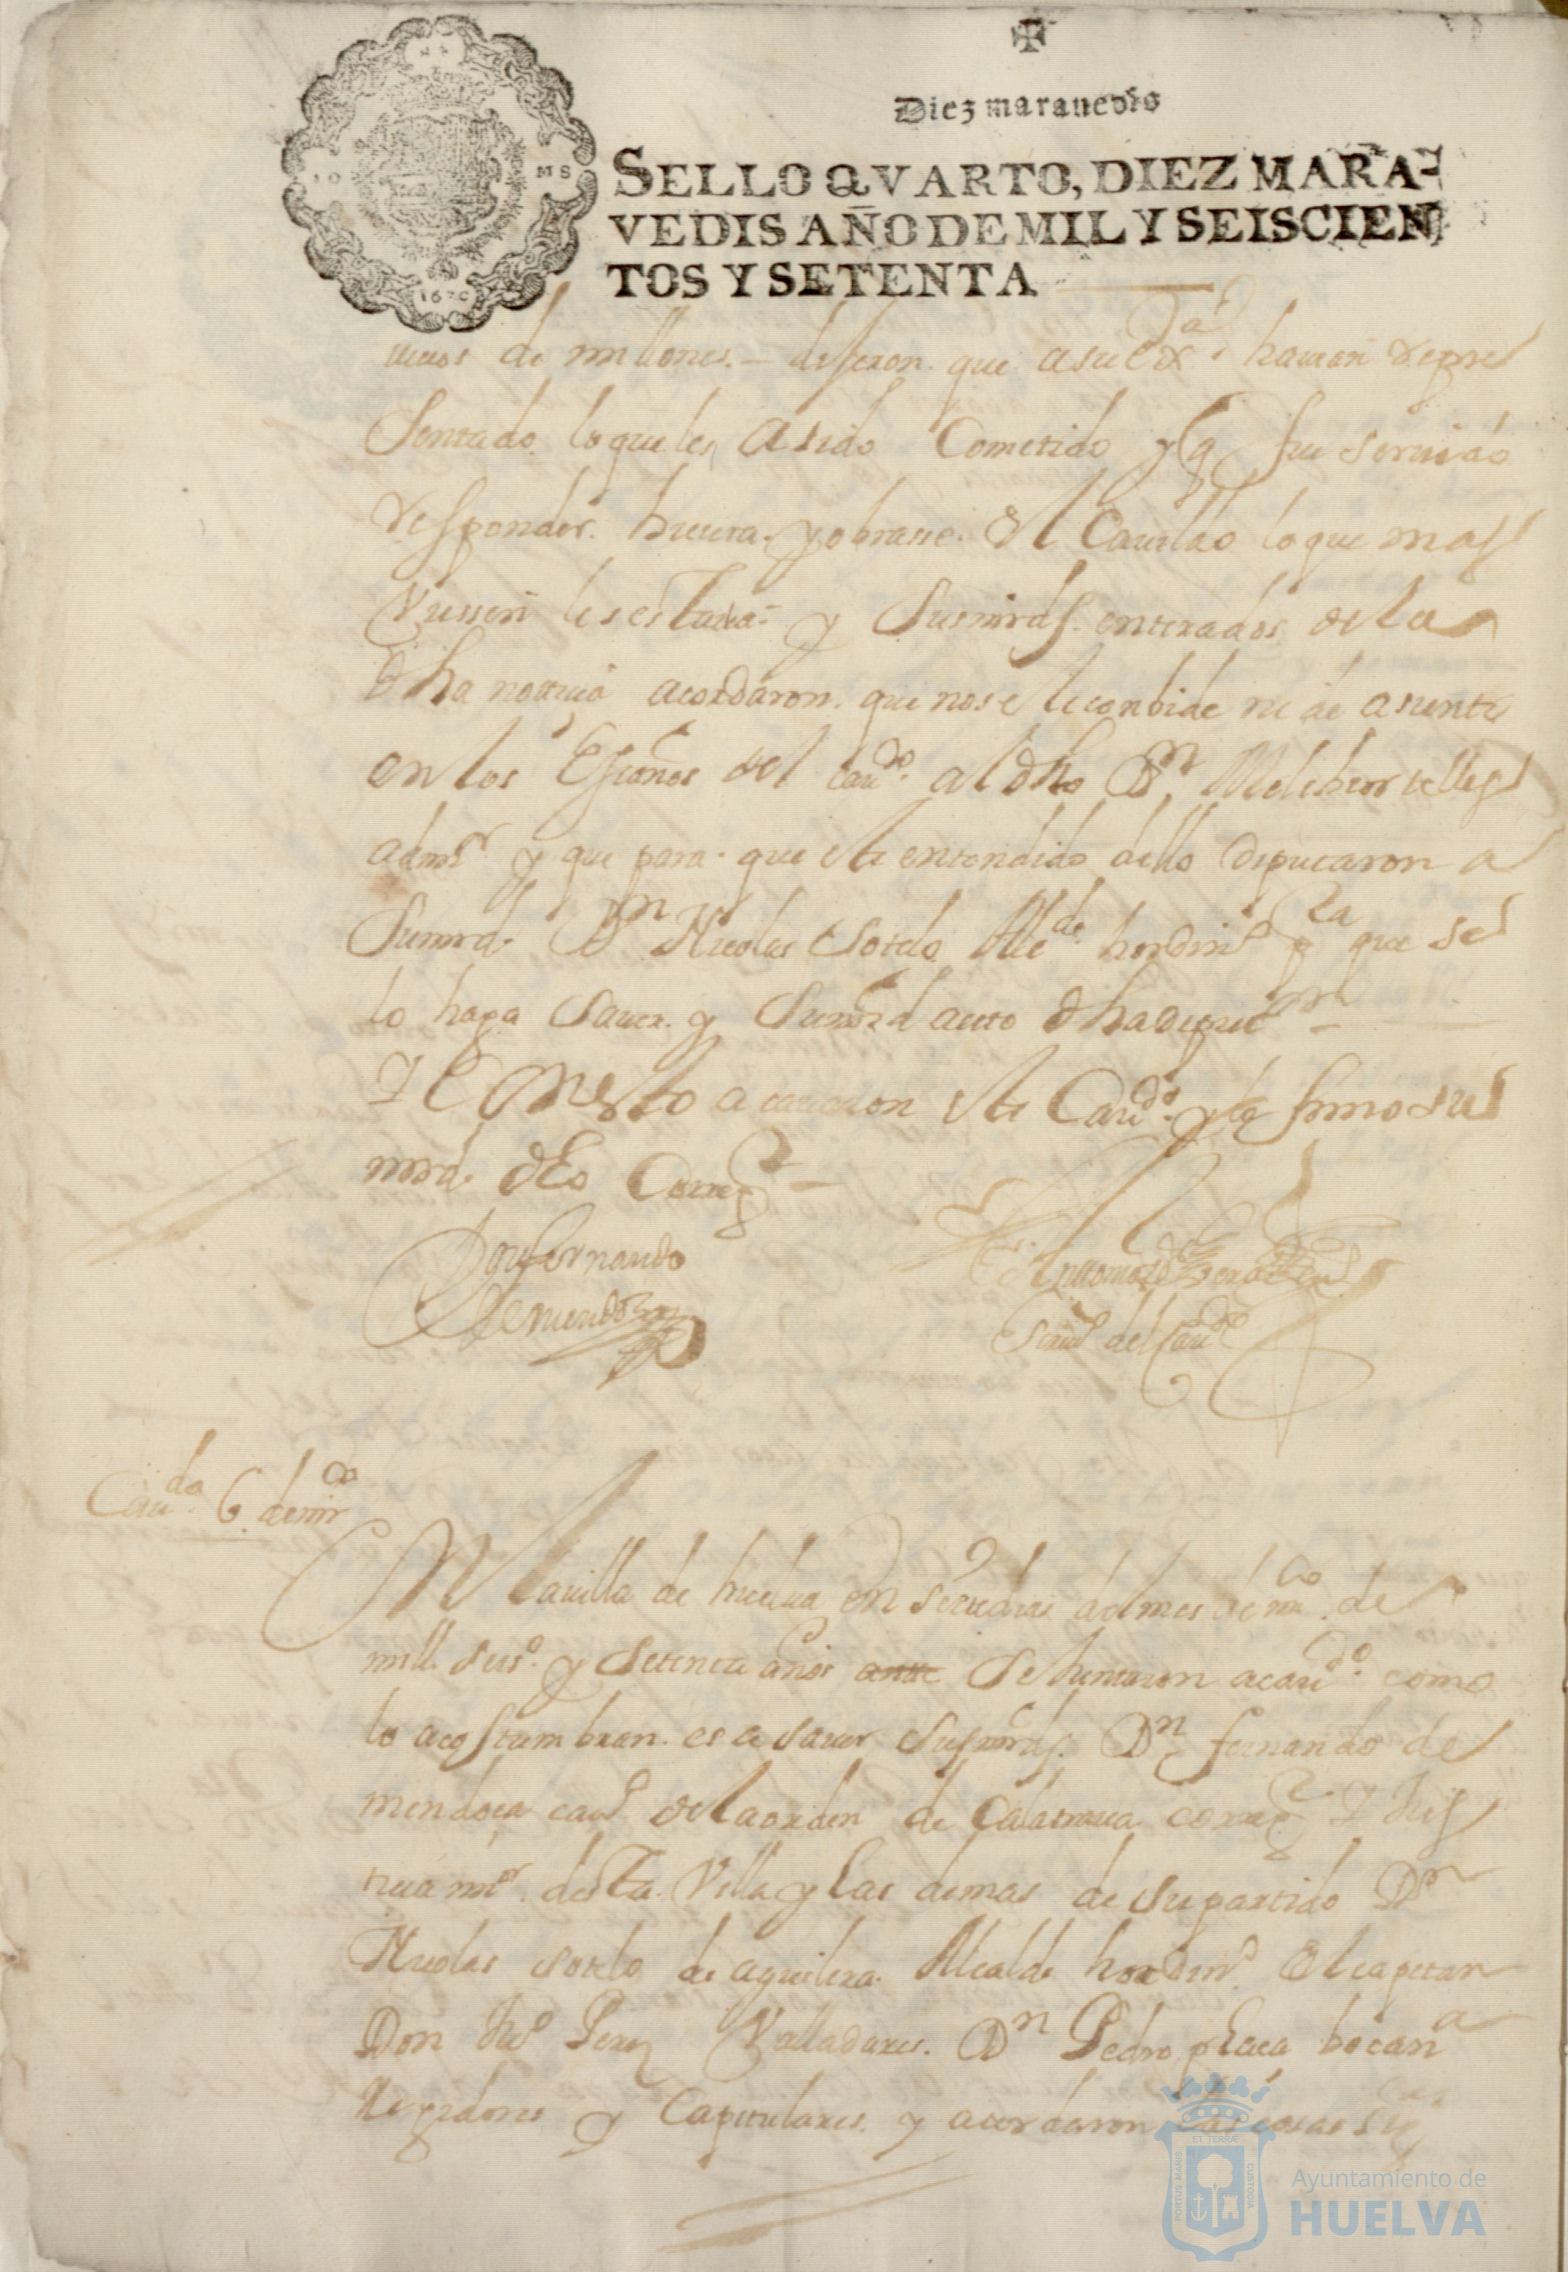 Diez marauedis
SELLO QVARTO, DIEZ MARA-
VEDIS AÑO DE MIL Y SEISCIEN
TOS Y SETENTA
1670
de millones. dijeron. que a su exª. hauian repre
sentado lo que les a sido Cometido y q fue seruido
responder. hiciera. y obrasse. el Cauildo lo que mas
bien les estaua. y Susmrds. enterados de la
dha noticia acordaron. que no se le conbide ni de asiento
en los Escaños del cauº. al dho Dn Melchor telles
admor y que para. que este entendido dello diputaron a
Sumrd. Dn Nicolas Sotelo Allde hordinº pª que se
lo haga Sauer. y Sumrd aceto dha diputon
Y Con esto acauaron este Cauº. y lo firmo su
mrd. del Correg
Don fernando
de mendoza
Antonio de
Scriuº del Cauº
Caudo. 6 de mço
En la villa de huelua en seis dias del mes de mço. de
mill seisº. y setenta años ante se huntaron a cauº. como
lo acostumbran. es a sauer susmrds. Dn fernando de
mendoça cauº de la orden de Calatraua correg Y Jus
ticia mor. desta Villa y las demas de su partido Dn
Nicolas Sotelo de aguilera. Alcalde hordinº El capitan
Don Juº Perez Valladares. Dn Pedro plaça bocanª
Regidores y Capitulares. y acordaron las cosas sigtes
PORTUS MARIS
ET TERRÆ
CUSTODIA
Ayuntamiento de
HUELVA